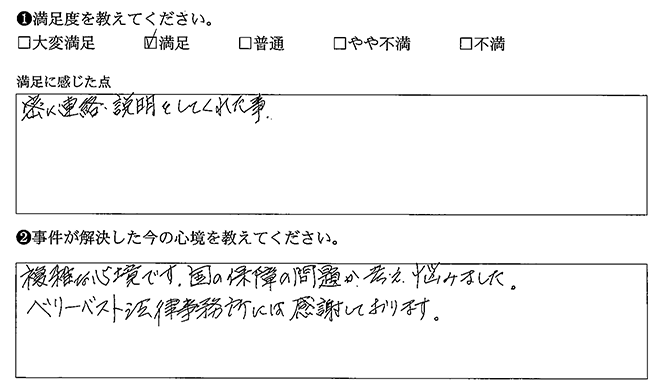 ❶満足度を教えてください。
□大変満足 ☑満足 □普通 □やや不満 □不満
満足に感じた点
密に連絡、説明をしてくれた事。
❷事件が解決した今の心境を教えてください。
複雑な心境です。国の保障の問題か、考え、悩みました。
ベリーベスト法律事務所には感謝しております。